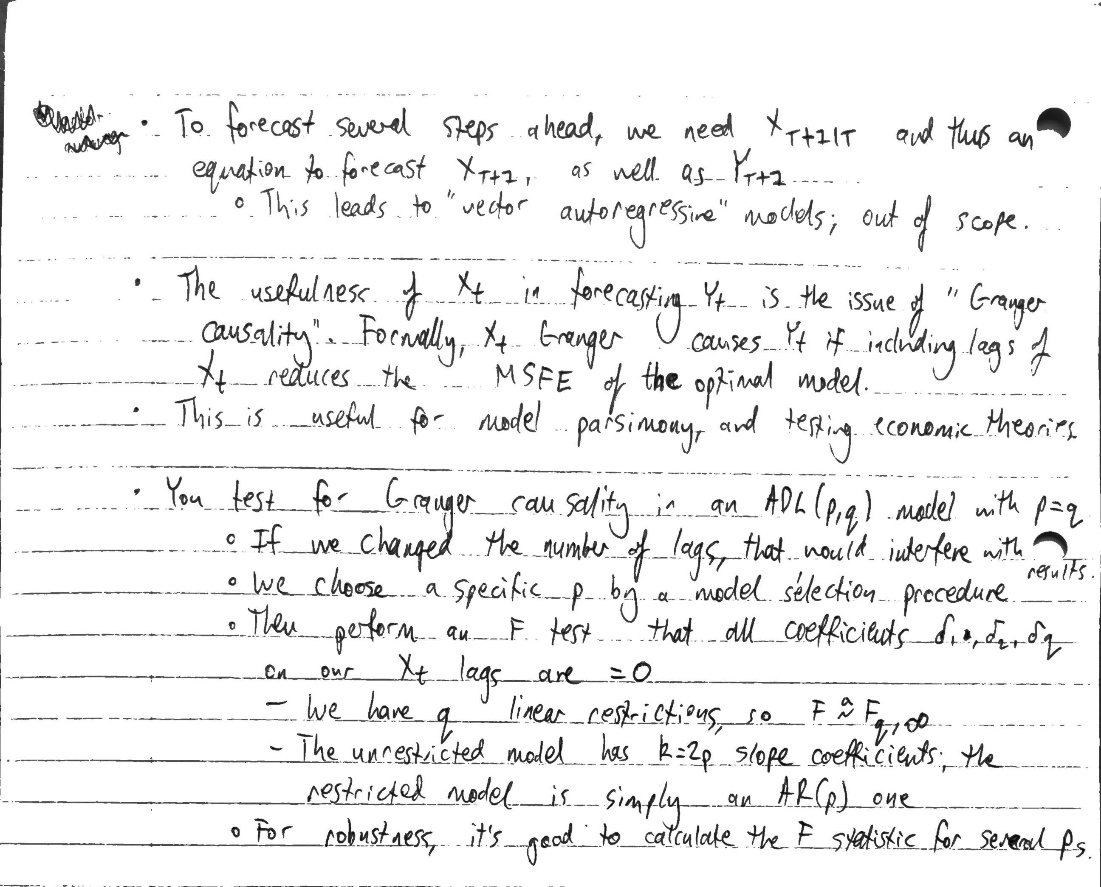 • To forecast several steps ahead, we need X_{T+2|T} and thus an
equation to forecast X_{T+2}, as well as Y_{T+2}
◦ This leads to "vector autoregressive" models; out of scope.
• The usefulness of X_t in forecasting Y_t is the issue of "Granger
causality". Formally, X_t Granger causes Y_t if including lags of
X_t reduces the MSFE of the optimal model.
• This is useful for model parsimony, and testing economic theories
• You test for Granger causality in an ADL(p,q) model with p=q
◦ If we changed the number of lags, that would interfere with
results.
◦ We choose a specific p by a model selection procedure
◦ Then perform an F test that all coefficients δ_1, δ_2, δ_q
on our X_t lags are =0
– We have q linear restrictions, so F ᵃ~ F_{q,∞}
– The unrestricted model has k=2p slope coefficients; the
restricted model is simply an AR(p) one
◦ For robustness, it's good to calculate the F statistic for several ps.